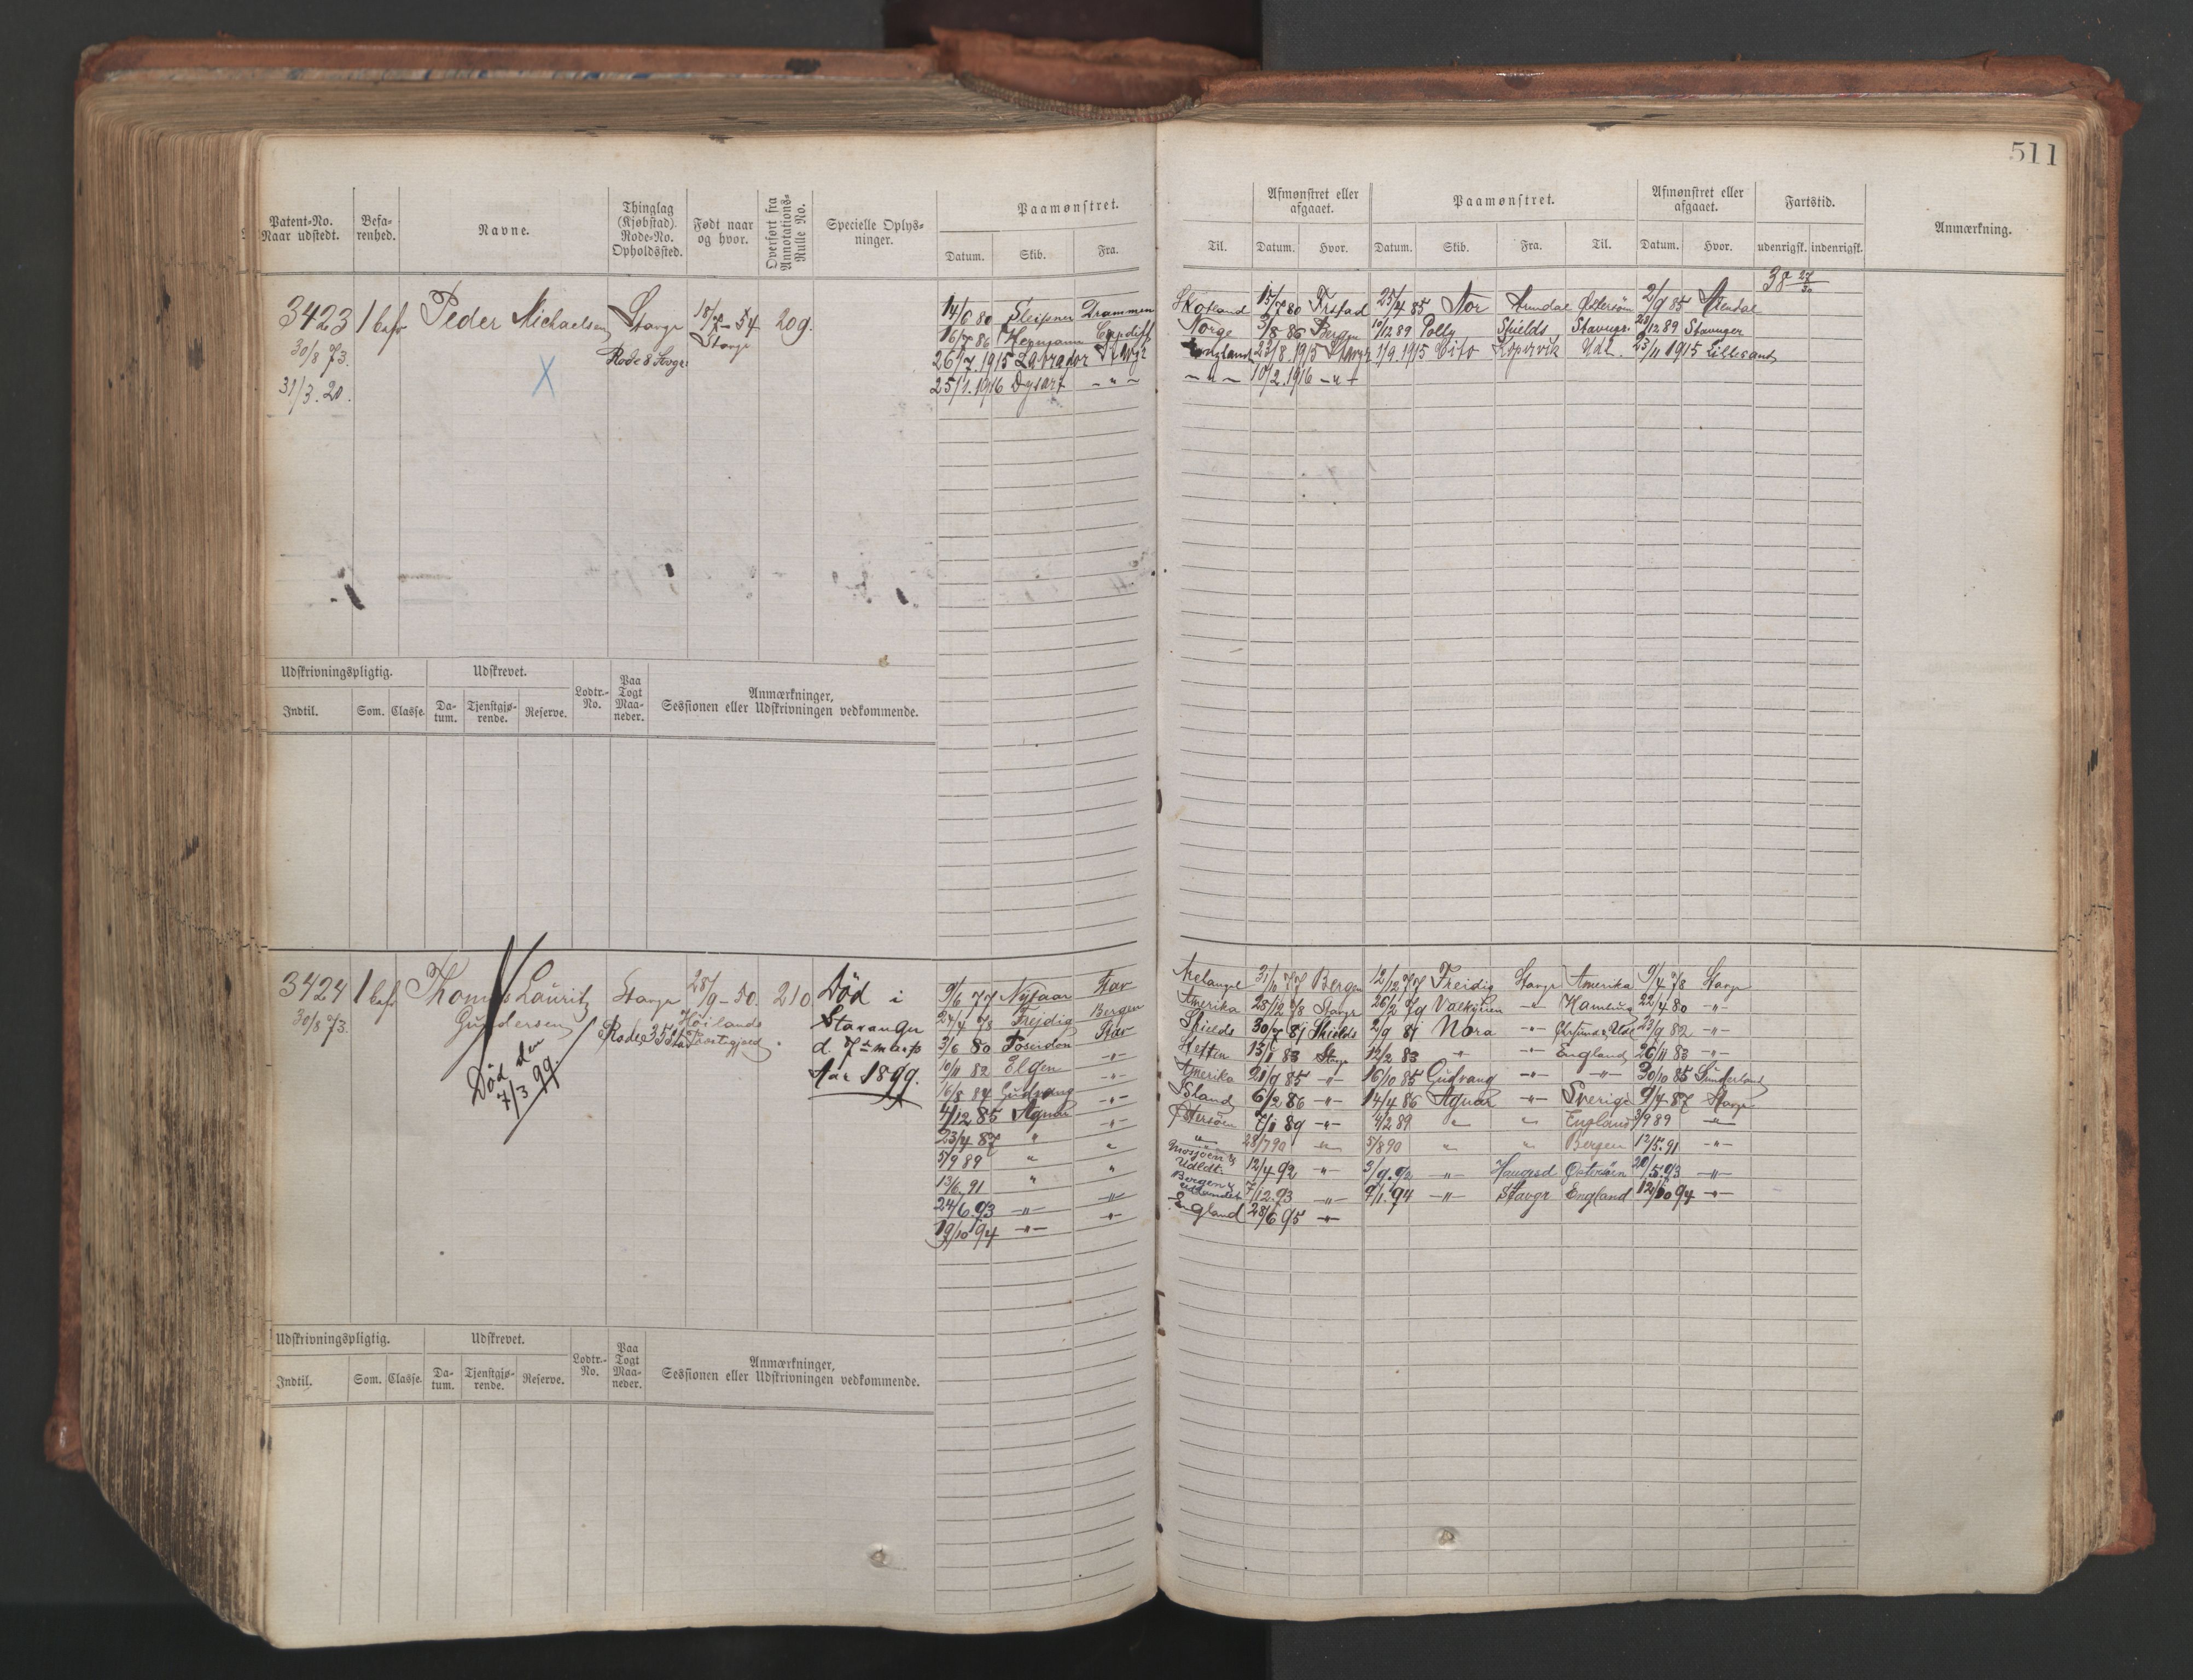 511
Patent-No. Naar udstedt.
Befa-renhed.
Navne.
Thinglag (Kjøbstad). Rode-No. Opholdssted.
Født naar og hvor.
Overført fra Annotations-Rulle No.
Specielle Oplys-ninger.
Paamønstret.
Datum. Skib. Fra.
Til.
Afmønstret eller afgaaet.
Datum. Hvor.
Paamønstret.
Datum. Skib. Fra. Til.
Afmønstret eller afgaaet.
Datum. Hvor.
Fartstid.
udenrigsk. indenrigsk.
Anmærkning.
38 27/30
3423 1 bafv Peder Michaelsen Stavgr 18/7-54 209.
30/8 73. Rode 8 Stvgr Stavgr
31/3. 20.
X
14/6 80 Sleipner Drammen Skotland 15/7 80 25/4 85 Nor Arendal Østersöen 2/9 85 Arendal
16/7 86 Hermann Cardiff Norge 3/8 86 Bergen 10/12 89 Polly Shields Stavngr. 28/12 89 Stavanger
26/7.1915 Labrador Stvgr England 23/8.1915 Stavgr 1/9.1915 Kopervik Udl. 23/11 1915 Lillesand
25/1.1916 Dysart - " - - " - 10/2.1916 - " -
Udskrivningspligtig. Udskrevet. Lodtr.-No. Paa Togt Maa-neder. Anmærkninger, Sessionen eller Udskrivningen vedkommende.
Indtil. Som. Classe. Da-tum. Tjenstgjø-rende. Reserve.
3424 1 bafv Thomas Lauritz Stavgr 28/9-50. 210 Död i
30/8 73. Gundersen Rode 35 Höilands Præstegjæld Stavanger
Död den d. 7de marts
7/3 99. Aar 1899.
9/6 77 Nytaar Stav Archangel 31/10 77 Bergen 12/12 77 Freidig Stavgr Amerika 9/4 78 Stavgr
24/4 78 Frejdig Bergen Amerika 28/12 78 Stavgr 26/2 79 Valkyrien - " - Hamburg 22/4 80 - " -
3/6 80 Poseidon Stav Shields 30/7 81 Shields 2/9 81 Nora - " - 23/9 82 - " -
10/11 82 Elgen - " - 13/1 83 Stavgr 12/2 83 " - " - England 26/11 83 - " -
16/8 84 Gudvang - " - Amerika 21/9 85 - " - 16/10 85 Gudvang - " - - " - 30/10 85 Sunderland
4/12 85 Agnar - " - Island 6/2 86 - " - 14/4 86 Agnar " Sverige 9/4 87 Stavgr
23/4 87 " - " - Østersöen 7/1 89 - " - 4/2 89 " " England 3/9 89 "
5/9 89 " " " 28/7 90 " 5/8 90 " " Bergen 12/5. 91 - " -
13/6. 91 " " Mosjöen & Udldt. 12/4 92 " 3/9. 92 - " - Haugesd Østersöen 20/5. 93 - " -
24/6. 93 - " - - " - Bergen & Udlandet 7/12. 93 - " - 9/1. 94 - " - Stavgr England 12/10 94 - " -
19/10 94 - " - - " - England 28/6 95 - " -
Udskrivningspligtig. Udskrevet. Lodtr.-No. Paa Togt Maa-neder. Anmærkninger, Sessionen eller Udskrivningen vedkommende.
Indtil. Som. Classe. Da-tum. Tjenstgjø-rende. Reserve.